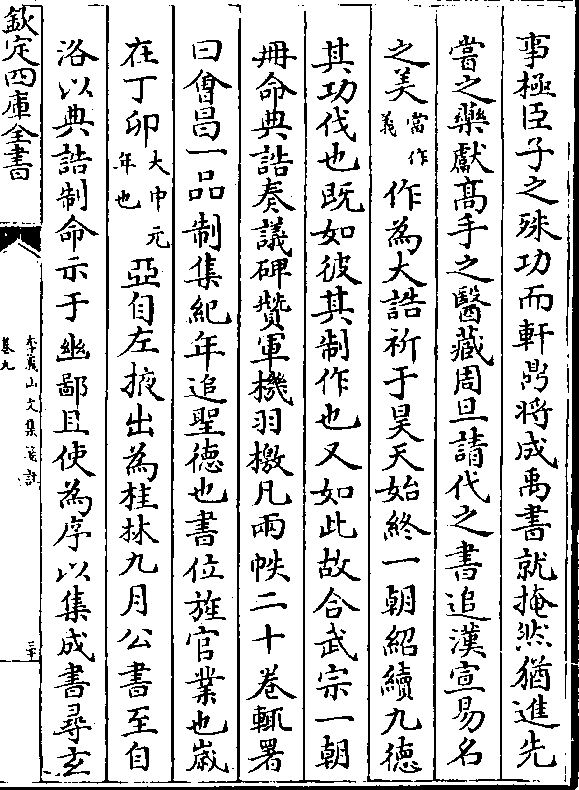 事極臣子之殊功而軒鼎將成禹書就掩然猶進先
嘗之藥獻髙手之醫藏周旦請代之書追漢宣易名
之美當作義作為大誥祈于昊天始終一朝紹續九德
其功伐也既如彼其制作也又如此故合武宗一朝
冊命典誥奏議碑贊軍機羽檄凡兩帙二十卷輒署
曰㑹昌一品制集紀年追聖德也書位旌官業也嵗
在丁卯大中元年也亞自左掖出為桂林九月公書至自
洛以典誥制命示于幽鄙且使為序以集成書尋玄
欽定四庫全書
李義山文集箋註
卷九
三十